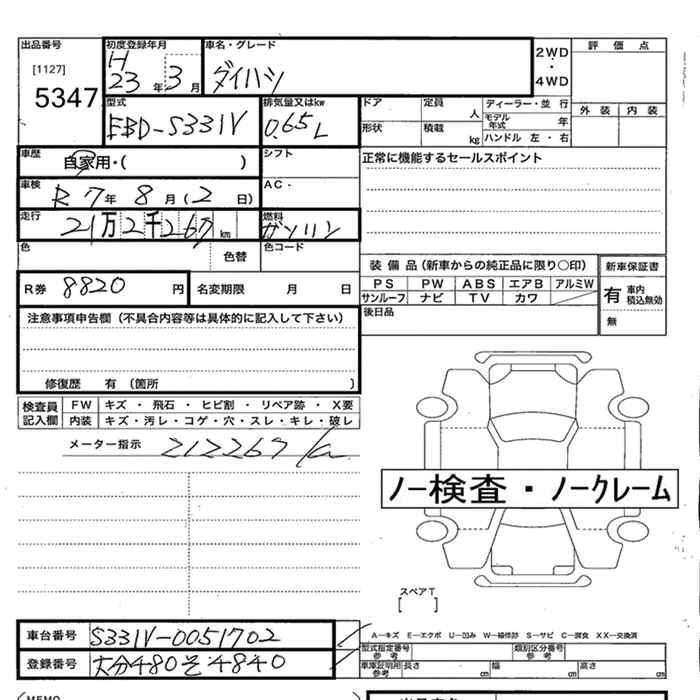 出品番号
[1127]
5347
初度登録年月
H
23年 3月
車名・グレード
ダイハツ
2WD
・
4WD
評価点
外装 内装
型式
EBD-S331V
排気量又はkw
0.65L
ドア
定員 人
ディーラー・並 行
モデル年式 年
形状
積載 kg
ハンドル 左・右
車歴
自家用・( )
シフト
正常に機能するセールスポイント
車検
R 7年 8月(2日)
AC・
走行
21万2千267km
燃料
ガソリン
色
色替
色コード
装備品(新車からの純正品に限り○印)
新車保証書
PS PW ABS エアB アルミW
サンルーフ ナビ TV カワ
有 車内積込無効
無
R券 8820 円
名変期限 月 日
後日品
注意事項申告欄(不具合内容等は具体的に記入して下さい)
修復歴 有(箇所 )
検査員記入欄
FW キズ・飛石・ヒビ割・リペア跡・X要
内装 キズ・汚レ・コゲ・穴・スレ・キレ・破レ
メーター指示 212267
ノー検査・ノークレーム
スペアT
[ ]
車台番号 S331V-0051702
登録番号 大分480そ4840
A―キズ E―エクボ U―凹み W―補修跡 S―サビ C―腐食 XX―交換済
型式指定番号 参考
類別区分番号 参考
車庫証明用 参考 長さ cm 幅 cm 高さ cm
(MEMO